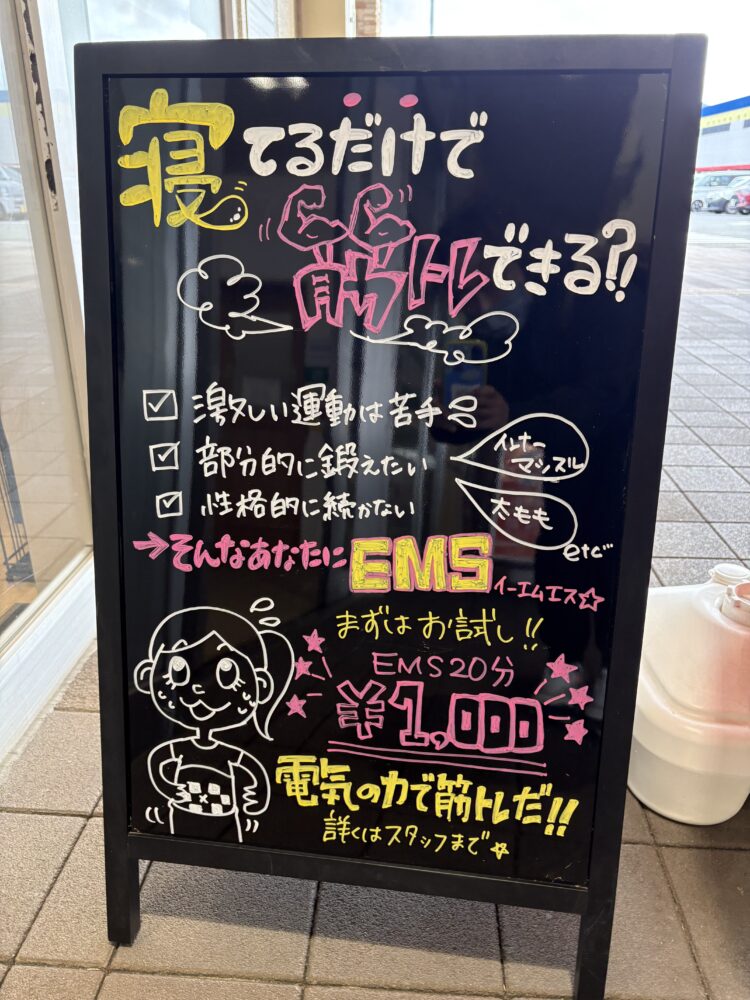 寝てるだけで
筋トレできる?!
☑ 激しい運動は苦手
☑ 部分的に鍛えたい
インナーマッスル
☑ 性格的に続かない
太もも
etc
→そんなあなたにEMS イーエムエス☆
まずはお試し!!
EMS20分
¥1,000
電気の力で筋トレだ!!
詳くはスタッフまで☆